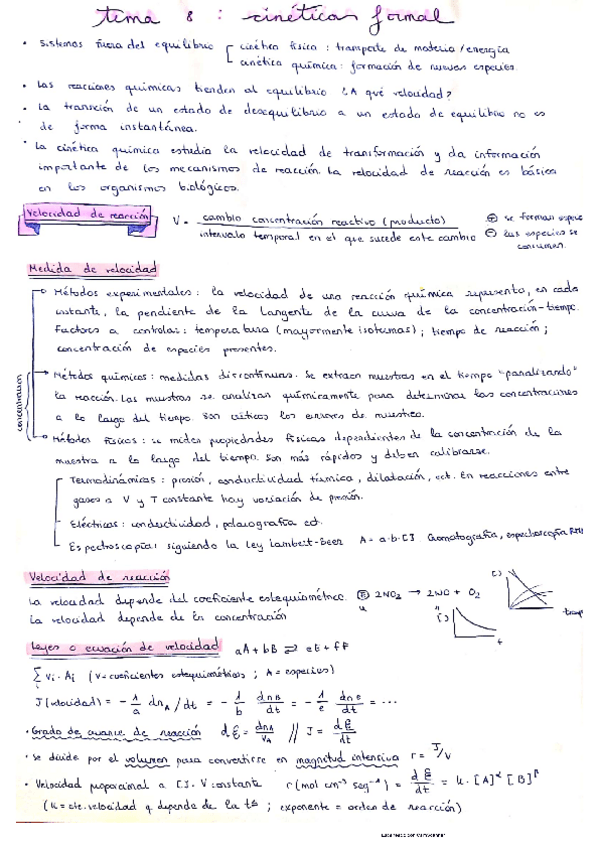 tema 8 : cinética formal
• Sistemas fuera del equilibrio [ cinética física : transporte de materia/energía
cinética química: formación de nuevas especies.
• Las reacciones químicas tienden al equilibrio ¿A qué velocidad?
• La transición de un estado de desequilibrio a un estado de equilibrio no es
de forma instantánea.
• La cinética química estudia la velocidad de transformación y da información
importante de los mecanismos de reacción. La velocidad de reacción es básica
en los organismos biológicos.
Velocidad de reacción
V = cambio concentración reactivo (producto)
intervalo temporal en el que sucede este cambio
⊕ se forman espe
⊖ las especies se
consumen.
Medida de velocidad
Métodos experimentales : la velocidad de una reacción química representa, en cada
instante, la pendiente de la tangente de la curva de la concentración-tiempo.
Factores a controlar : temperatura (mayormente isotermas) ; tiempo de reacción ;
concentración de especies presentes.
concentración
Métodos químicos : medidas discontinuas. Se extraen muestras en el tiempo "paralizando"
la reacción. Las muestras se analizan químicamente para determinar las concentraciones
a lo largo del tiempo. Son críticos los errores de muestreo.
Métodos físicos : se miden propiedades físicas dependientes de la concentración de la
muestra a lo largo del tiempo. Son más rápidos y deben calibrarse.
Termodinámicas : presión, conductividad térmica, dilatación, ect. En reacciones entre
gases a V y T constante hay variación de presión.
Eléctricas : conductividad, polarografía ect.
Espectroscopía: siguiendo la Ley lambert-beer A = a·b·[] Cromatografía, espectroscopía RMN
Velocidad de reacción
La velocidad depende del coeficiente estequiométrico. 2NO₂ → 2NO + O₂
La velocidad depende de la concentración
[]
[]
t
tiemp
Leyes o ecuación de velocidad aA + bB ⇄ eE + fF
∑ νi · Ai (ν = coeficientes estequiométricos ; A = especies)
J (velocidad) = - 1/a dnA/dt = - 1/b dnB/dt = - 1/e dnE/dt = ...
• Grado de avance de reacción dξ = dnA/νA // J = dξ/dt
• Se divide por el volumen para convertirse en magnitud intensiva r = J/V
• Velocidad proporcional a []. V constante r (mol cm⁻³ seg⁻¹) = dξ/dt = k · [A]^α [B]^β
(k = cte. velocidad q depende de la tª ; exponente = orden de reacción)